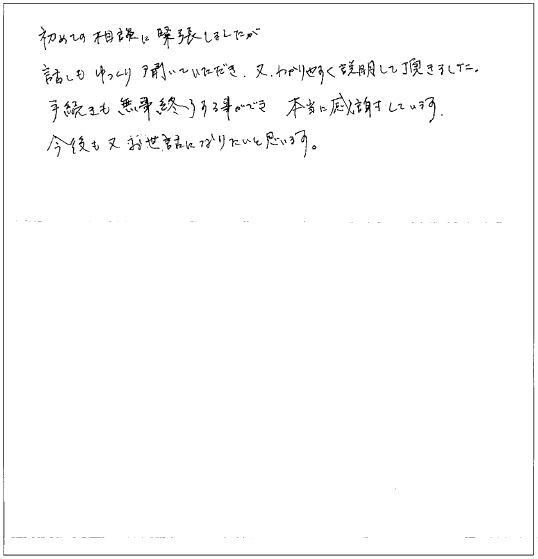 初めての相談に緊張しましたが
話しもゆっくり聞いていただき、又、わかりやすく説明して頂きました。
手続きも無事終了する事ができ 本当に感謝しています。
今後も又お世話になりたいと思います。